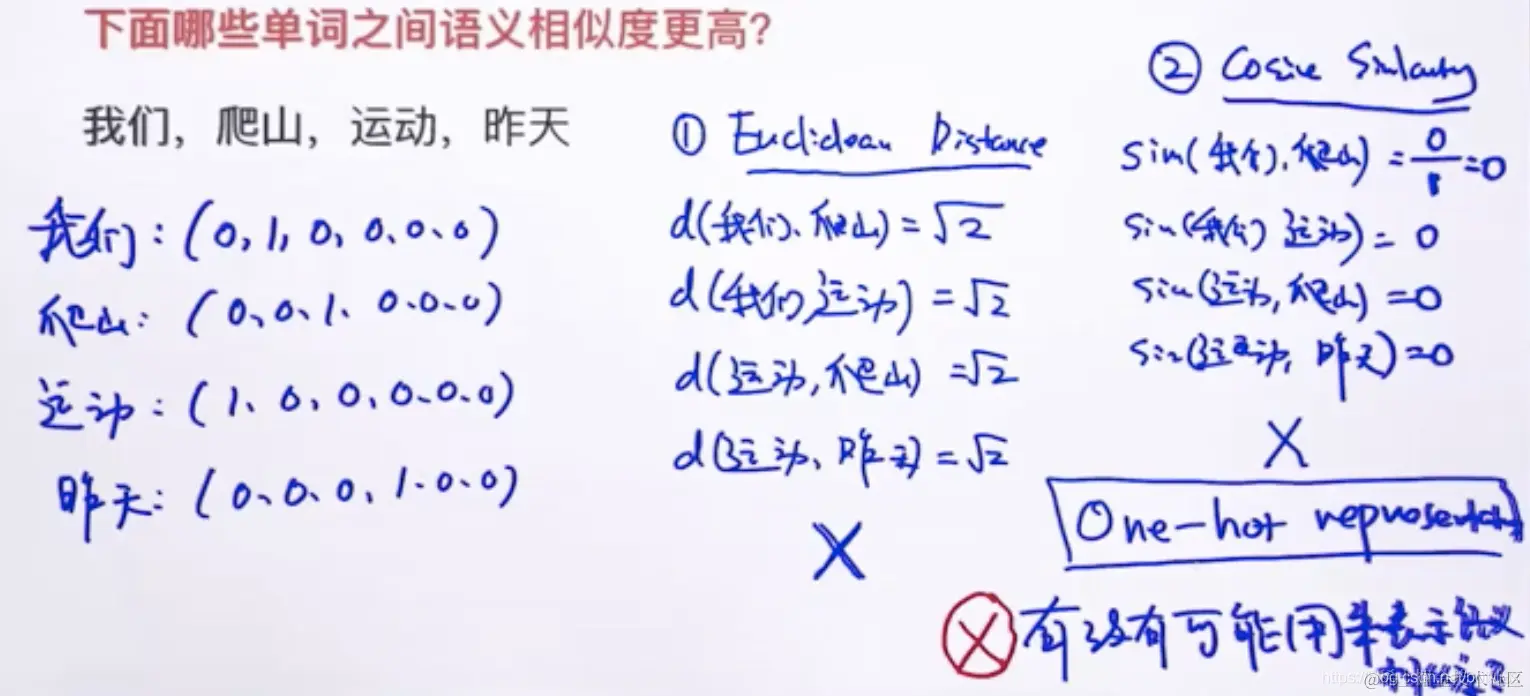 下面哪些单词之间语义相似度更高?
我们，爬山，运动，昨天
我们: (0, 1, 0, 0.0.0)
爬山: (0, 0, 1. 0.0.0)
运动: (1. 0, 0, 0.0.0)
昨天: (0. 0. 0, 1.0.0)
① Euclidean Distance
d(我们、爬山) = √2
d(我们,运动) = √2
d(运动,爬山) = √2
d(运动、昨天) = √2
X
② Cosine Similarity
Sim(我们,爬山) = 0/1 = 0
Sim(我们,运动) = 0
Sim(运动,爬山) = 0
Sim(运动, 昨天) = 0
X
One-hot represent
X 有没有可能用来表示语义